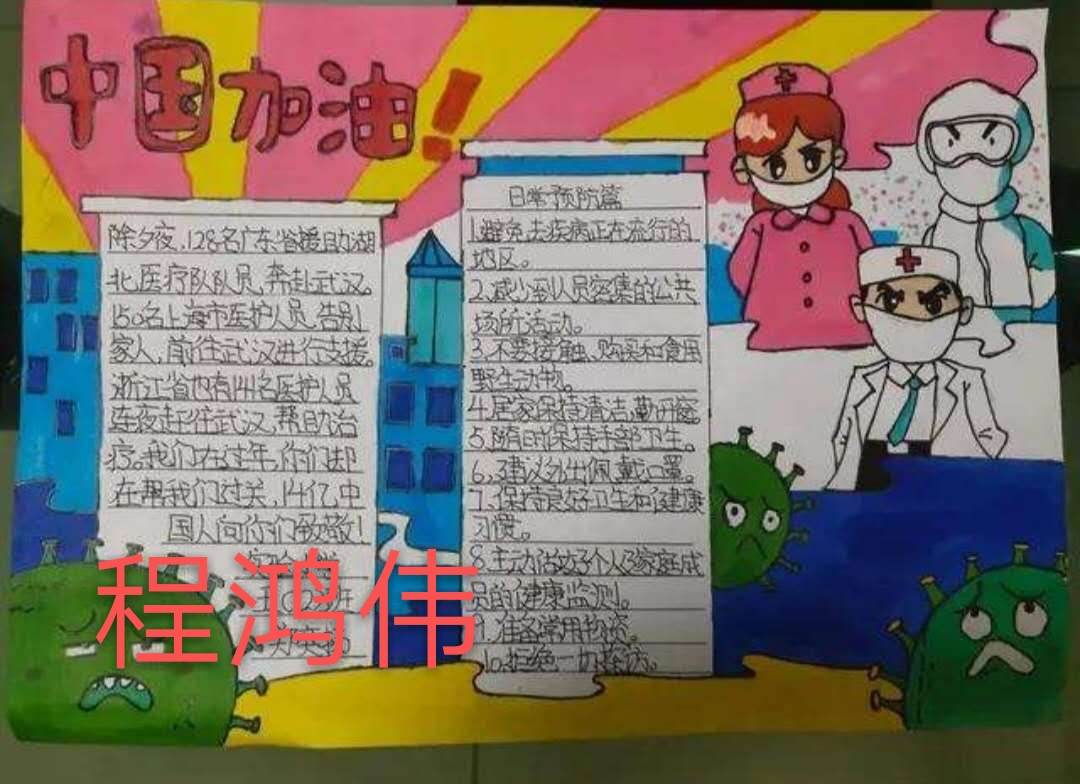 中国加油!
除夕夜,128名广东省援助湖
北医疗队队员,奔赴武汉。
150名上海市医护人员,告别
家人,前往武汉进行支援。
浙江省也有141名医护人员
连夜赶往武汉,帮助治
疗。我们在过年,你们却
在帮我们过关,14亿中
国人向你们致敬!
程鸿伟
日常预防篇
1.避免去疾病正在流行的
地区。
2.减少到人员密集的公共
场所活动。
3.不要接触、购买和食用
野生动物。
4.居家保持清洁,勤开窗
5.随时保持手部卫生。
6.建议外出佩戴口罩。
7.保持良好卫生和健康
习惯。
8.主动做好个人及家庭成
员的健康监测。
9.准备常用物资。
10.拒绝一切探访。